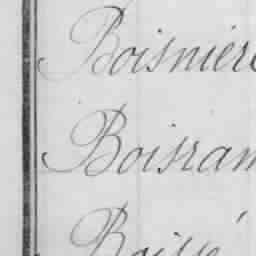 Boisnière
Boisram
Boissé